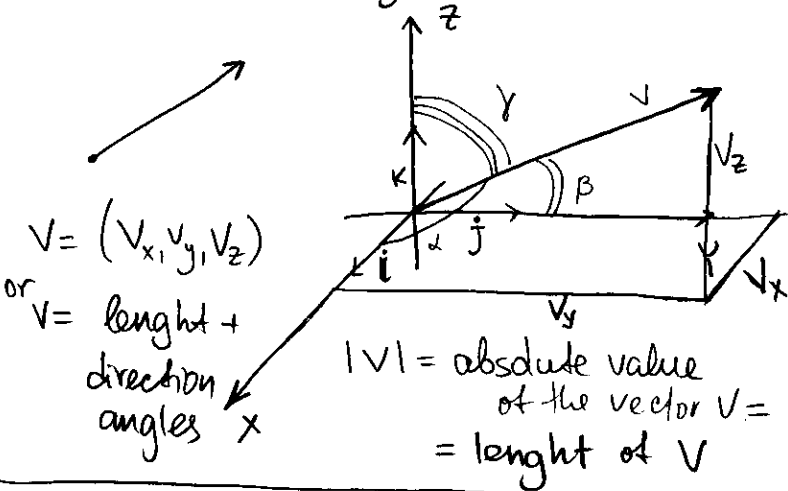 z
γ
V
V_z
K
β
α
j
i
V = (V_x, V_y, V_z)
or
V = lenght +
direction
angles
x
V_y
V_x
|V| = absolute value
of the vector V =
= lenght of V